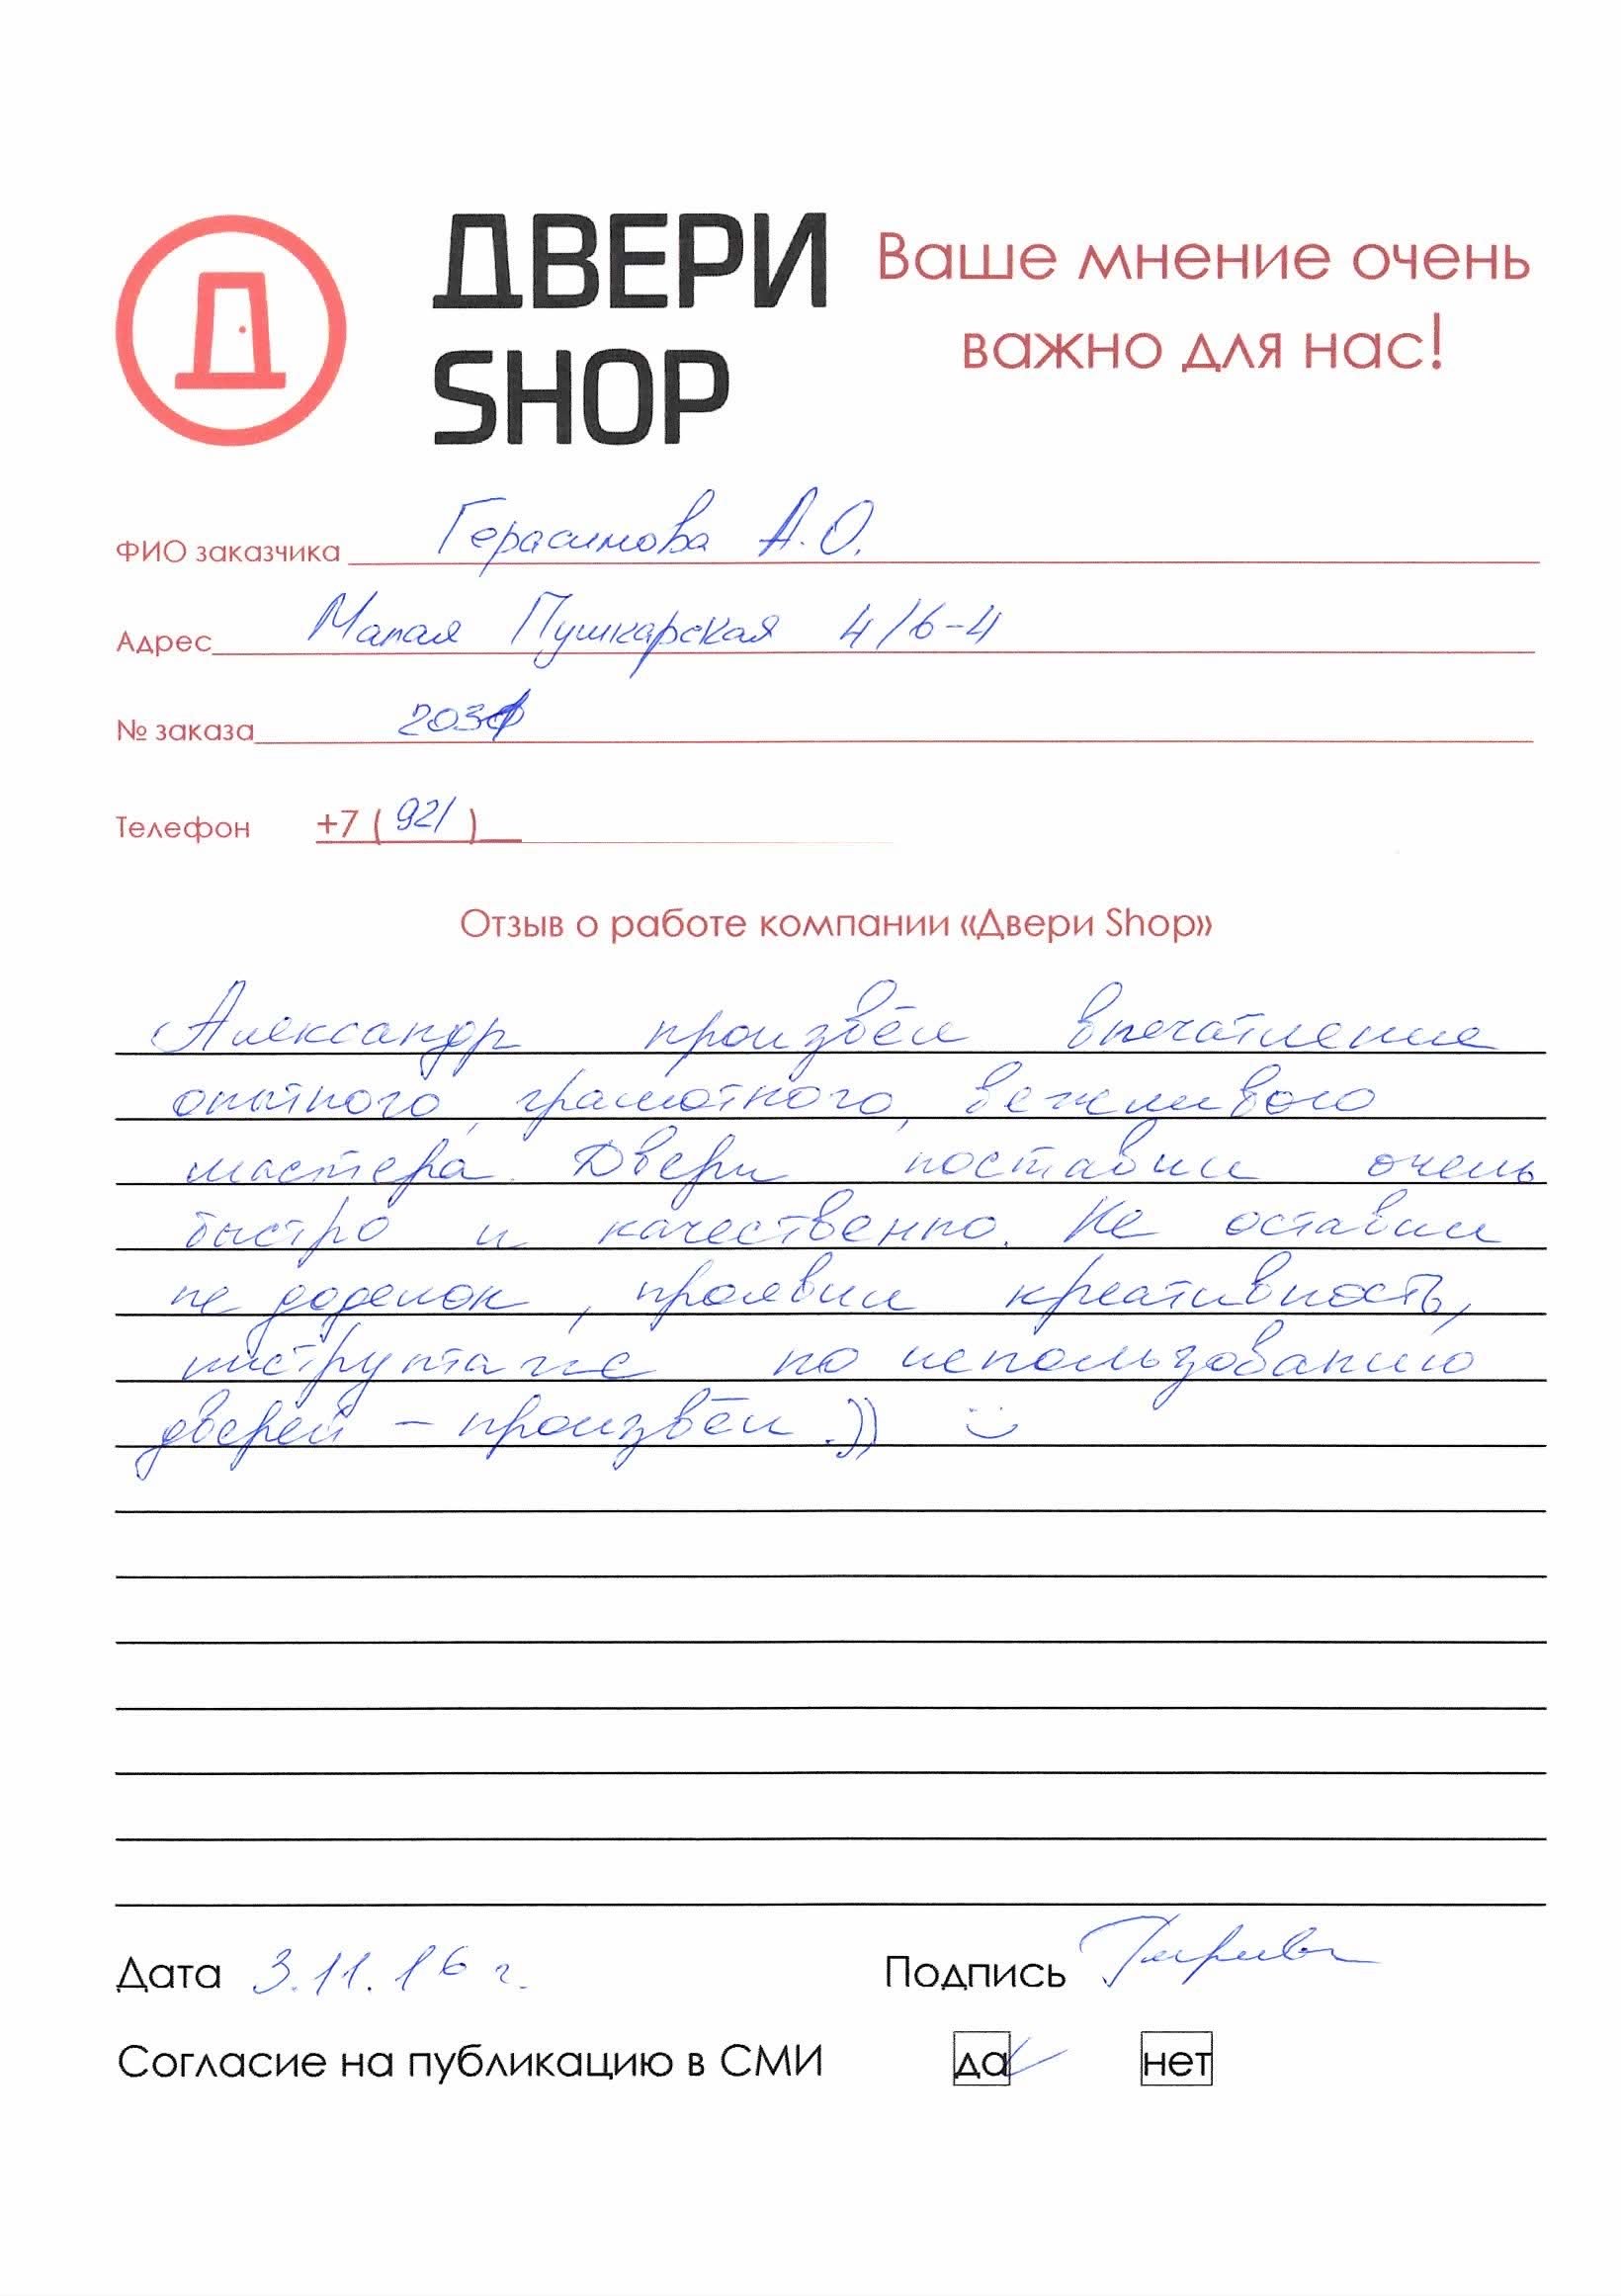 ДВЕРИ
SHOP
Ваше мнение очень
важно для нас!
ФИО заказчика Герасимова А.О.
Адрес Малая Пушкарская 4/6-4
№ заказа
Телефон +7 (921)
Отзыв о работе компании «Двери Shop»
Александр произвёл впечатление
опытного, грамотного, вежливого
мастера. Двери поставил очень
быстро и качественно. Не оставил
не доделок, проявил креативность,
инструктаж по использованию
дверей – произвёл.)) 
Дата 3.11.16 г. Подпись
Согласие на публикацию в СМИ да нет